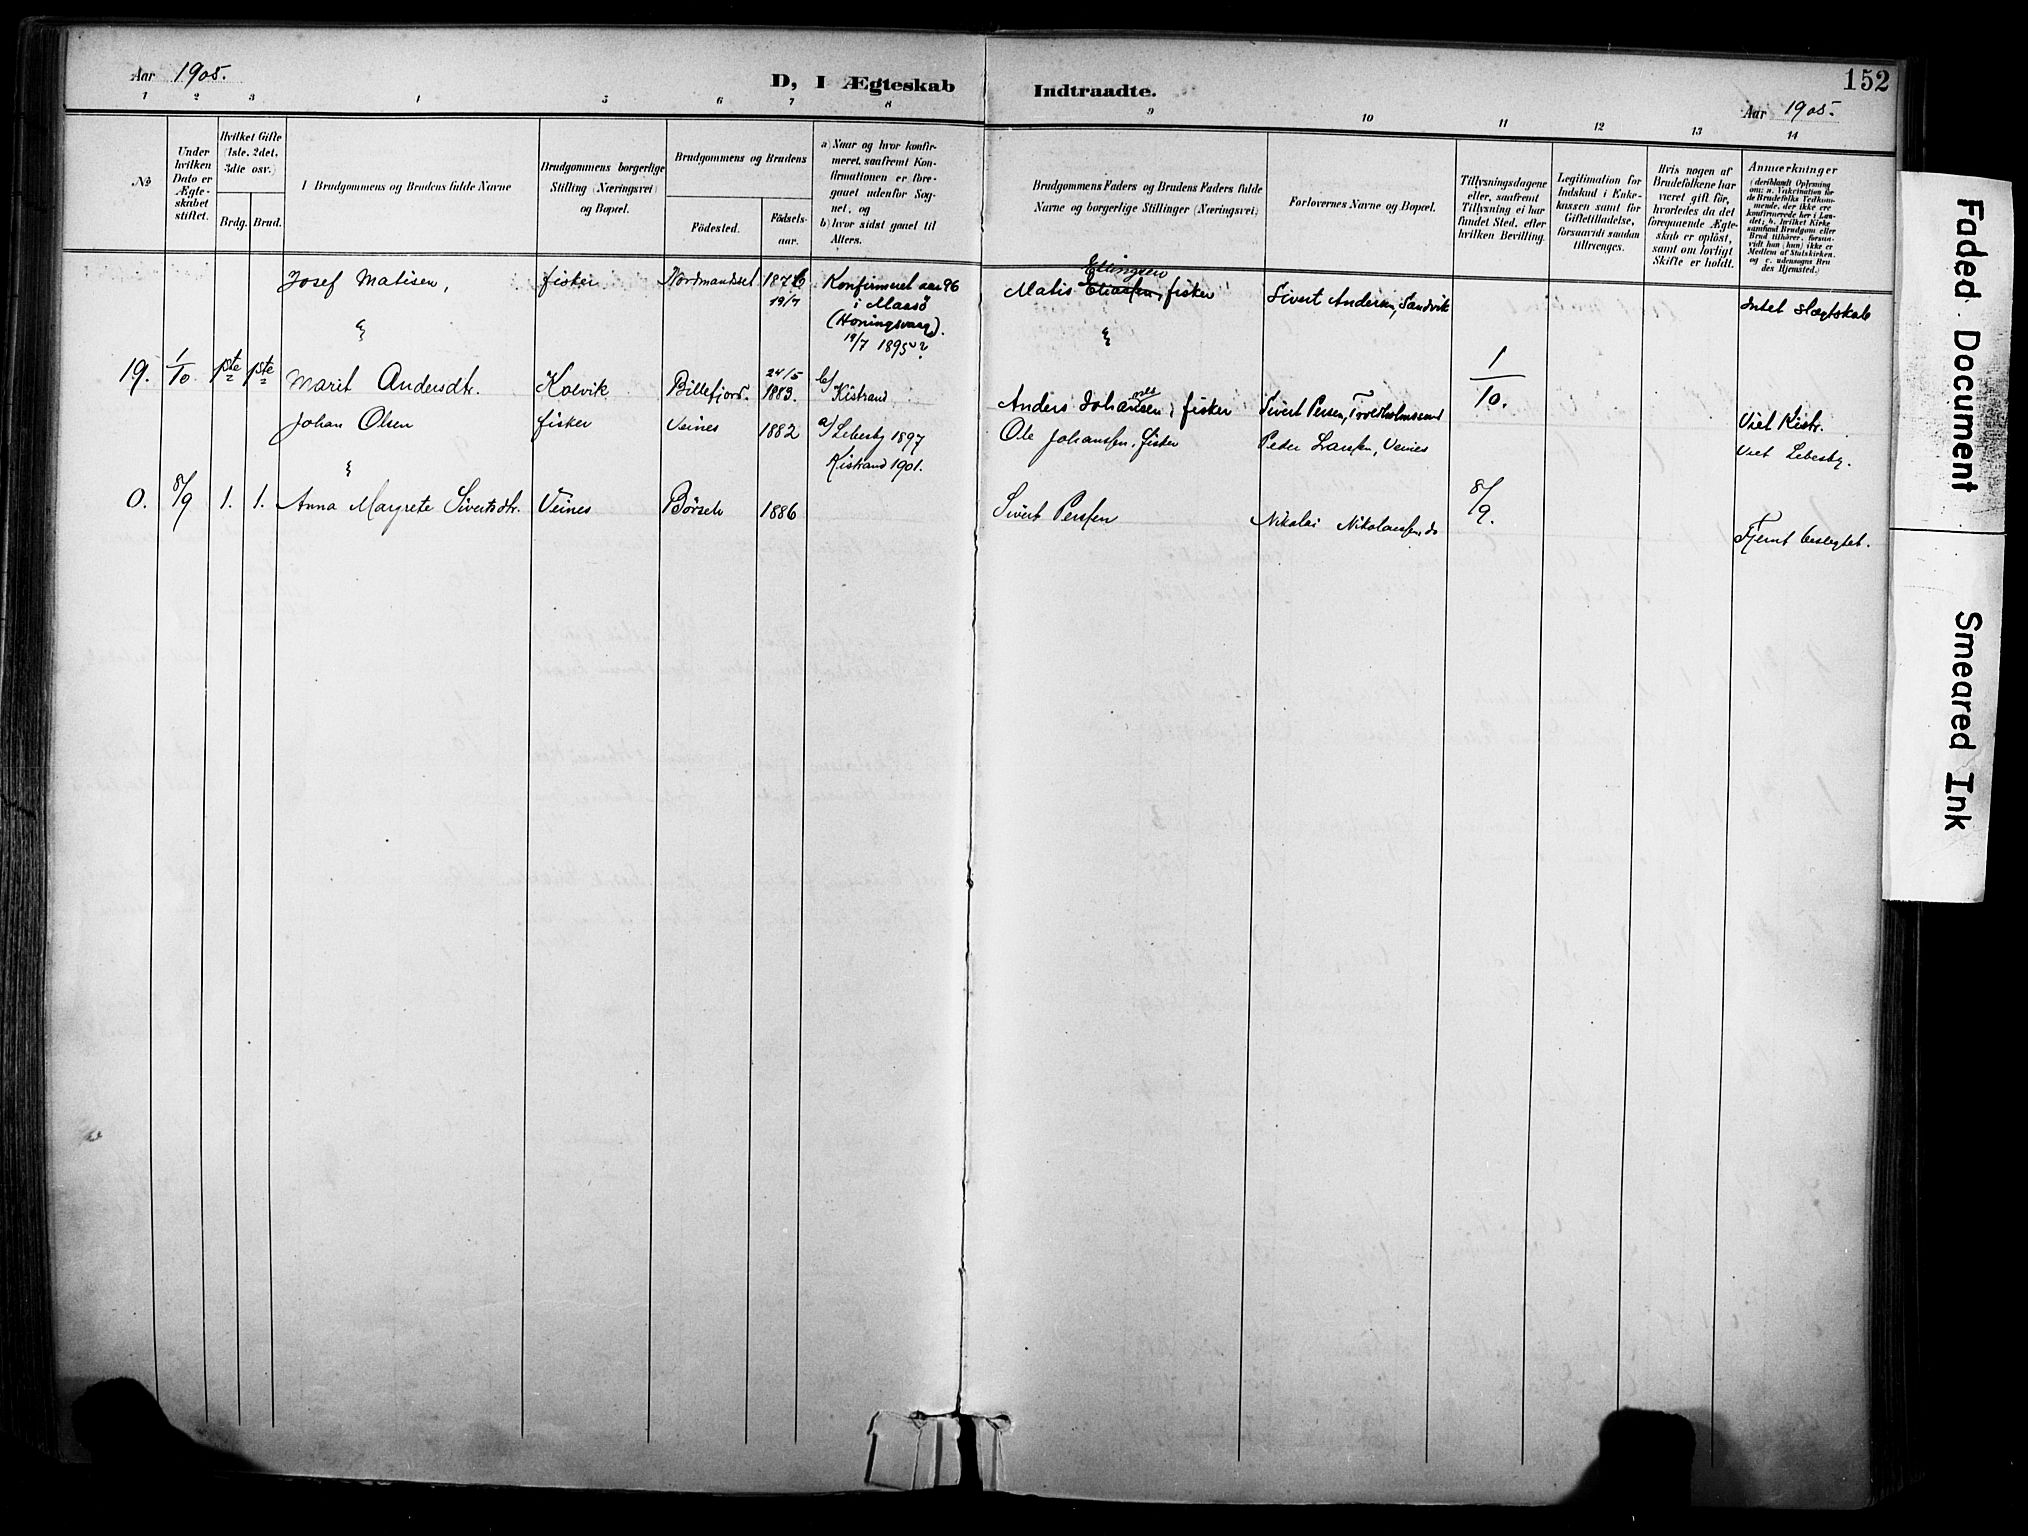 Aar 1905.
D, I Ægteskab Indtraadte.
152
Aar 1905.
1 2 3 4 5 6 7 8 9 10 11 12 13 14
No
Under hvilken Dato er Ægteskabet stiftet.
Hvilket Gifte (1ste, 2det, 3die osv.)
Brdg. Brud.
I Brudgommens og Brudens fulde Navne
Brudgommens borgerlige Stilling (Næringsvei) og Bopæl.
Brudgommens og Brudens
Fødested.
Fødselsaar.
a) Naar og hvor konfirmeret, saafremt Konfirmationen er foregaaet udenfor Sognet, og
b) hvor sidst gaaet til Alters.
Brudgommens Faders og Brudens Faders fulde Navne og borgerlige Stillinger (Næringsvei)
Forlovernes Navne og Bopæl.
Tillysningsdagene eller, saafremt Tillysning ei har fundet Sted, efter hvilken Bevilling.
Legitimation for Indskud i Enkekassen samt for Giftetilladelse, forsaavidt saadan tiltrænges.
Hvis nogen af Brudefolkene har været gift før, hvorledes da det foregaaende Ægteskab er opløst, samt om lovligt Skifte er holdt.
Anmærkninger
(deriblandt Oplysning om: a. Vakcination for de Brudefolks Vedkommende, der ikke ere konfirmerede her i Landet; b. hvilket Kirkesamfund Brudgom eller Brud tilhører, forsaavidt han (hun) ikke er Medlem af Statskirken, og c. udensogns Brudes Hjemsted.)
Josef Matisen, fisker Nordmandset 1876 19/7 Konfirmeret aar 96 i Maasö (Honingsvaag). 19/7 1895? Matis Eliassen, fisker Sivert Andersen, Sandvik Intet slægtskab
19. 1/10 1ste 1ste Marit Andersdtr. Kolvik Billefjord. 24/5 1883. b/ Kistrand Anders Johansen, fisker Sivert Persen, 1/10. Viet Kistr.
Johan Olsen fisker Veines 1882 a/ Lebesby 1897 Kistrand 1901. Ole Johanssen, fisker Peder Larssen, Veines Viet Lebesby.
0. 8/9 1. 1. Anna Margrete Sivertsdtr. Veines Børselv 1886 Sivert Perssen Nikolai Nikolaissen, do 8/9. Fjernt beslegtet.
Faded Document
Smeared Ink